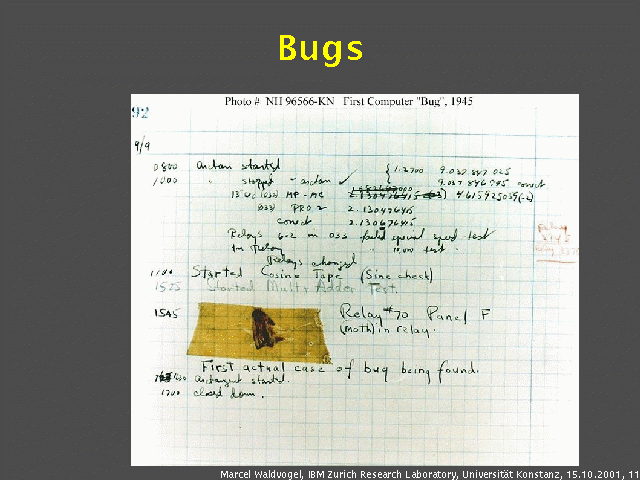 Bugs
Photo # NH 96566-KN First Computer "Bug", 1945
92
9/9
0800 Antan started
1000 " stopped - antan ✓ { 1.2700 9.037 847 025
9.037 846 995 correct
13"UC (032) MP-MC 2.130476415 4.615925059(-2)
(033) PRO 2 2.130476415
correct 2.130676415
Relays 6-2 in 033 failed special speed test
in Relay " 10,000 test.
Relays changed
1100 Started Cosine Tape (Sine check)
1525 Started Mult + Adder Test.
1545 Relay #70 Panel F
(moth) in relay.
First actual case of bug being found.
1630 antangent started.
1700 closed down.
Marcel Waldvogel, IBM Zurich Research Laboratory, Universität Konstanz, 15.10.2001, 11